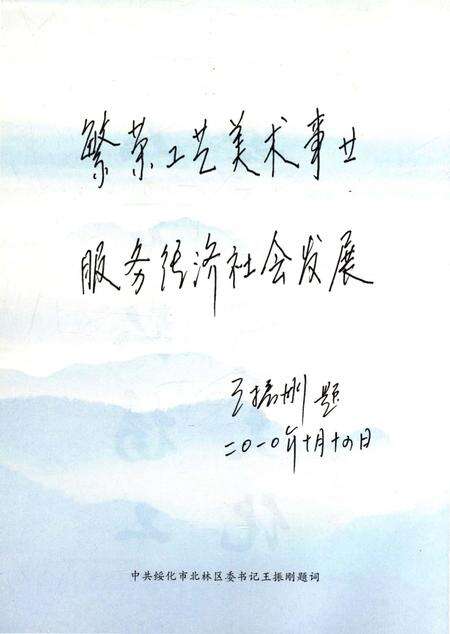 繁荣工艺美术事业
服务经济社会发展
王振刚 题
二〇一〇年十月十四日
中共绥化市北林区委书记王振刚题词